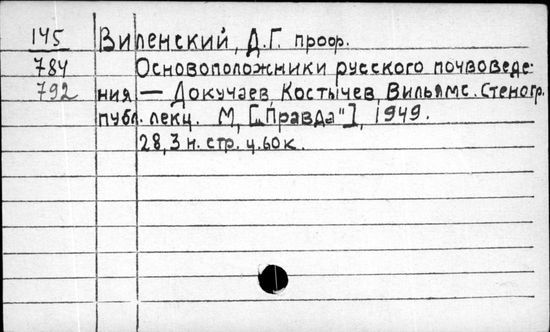 145 Виленский, Д.Г. проф.
784 Основоположники русского почвоведе-
792 ния — Докучаев, Костычев, Вильямс. Стеногр.
публ. лекц. М, [„Правда"], 1949.
28,3 н. стр. ц. 60 к.